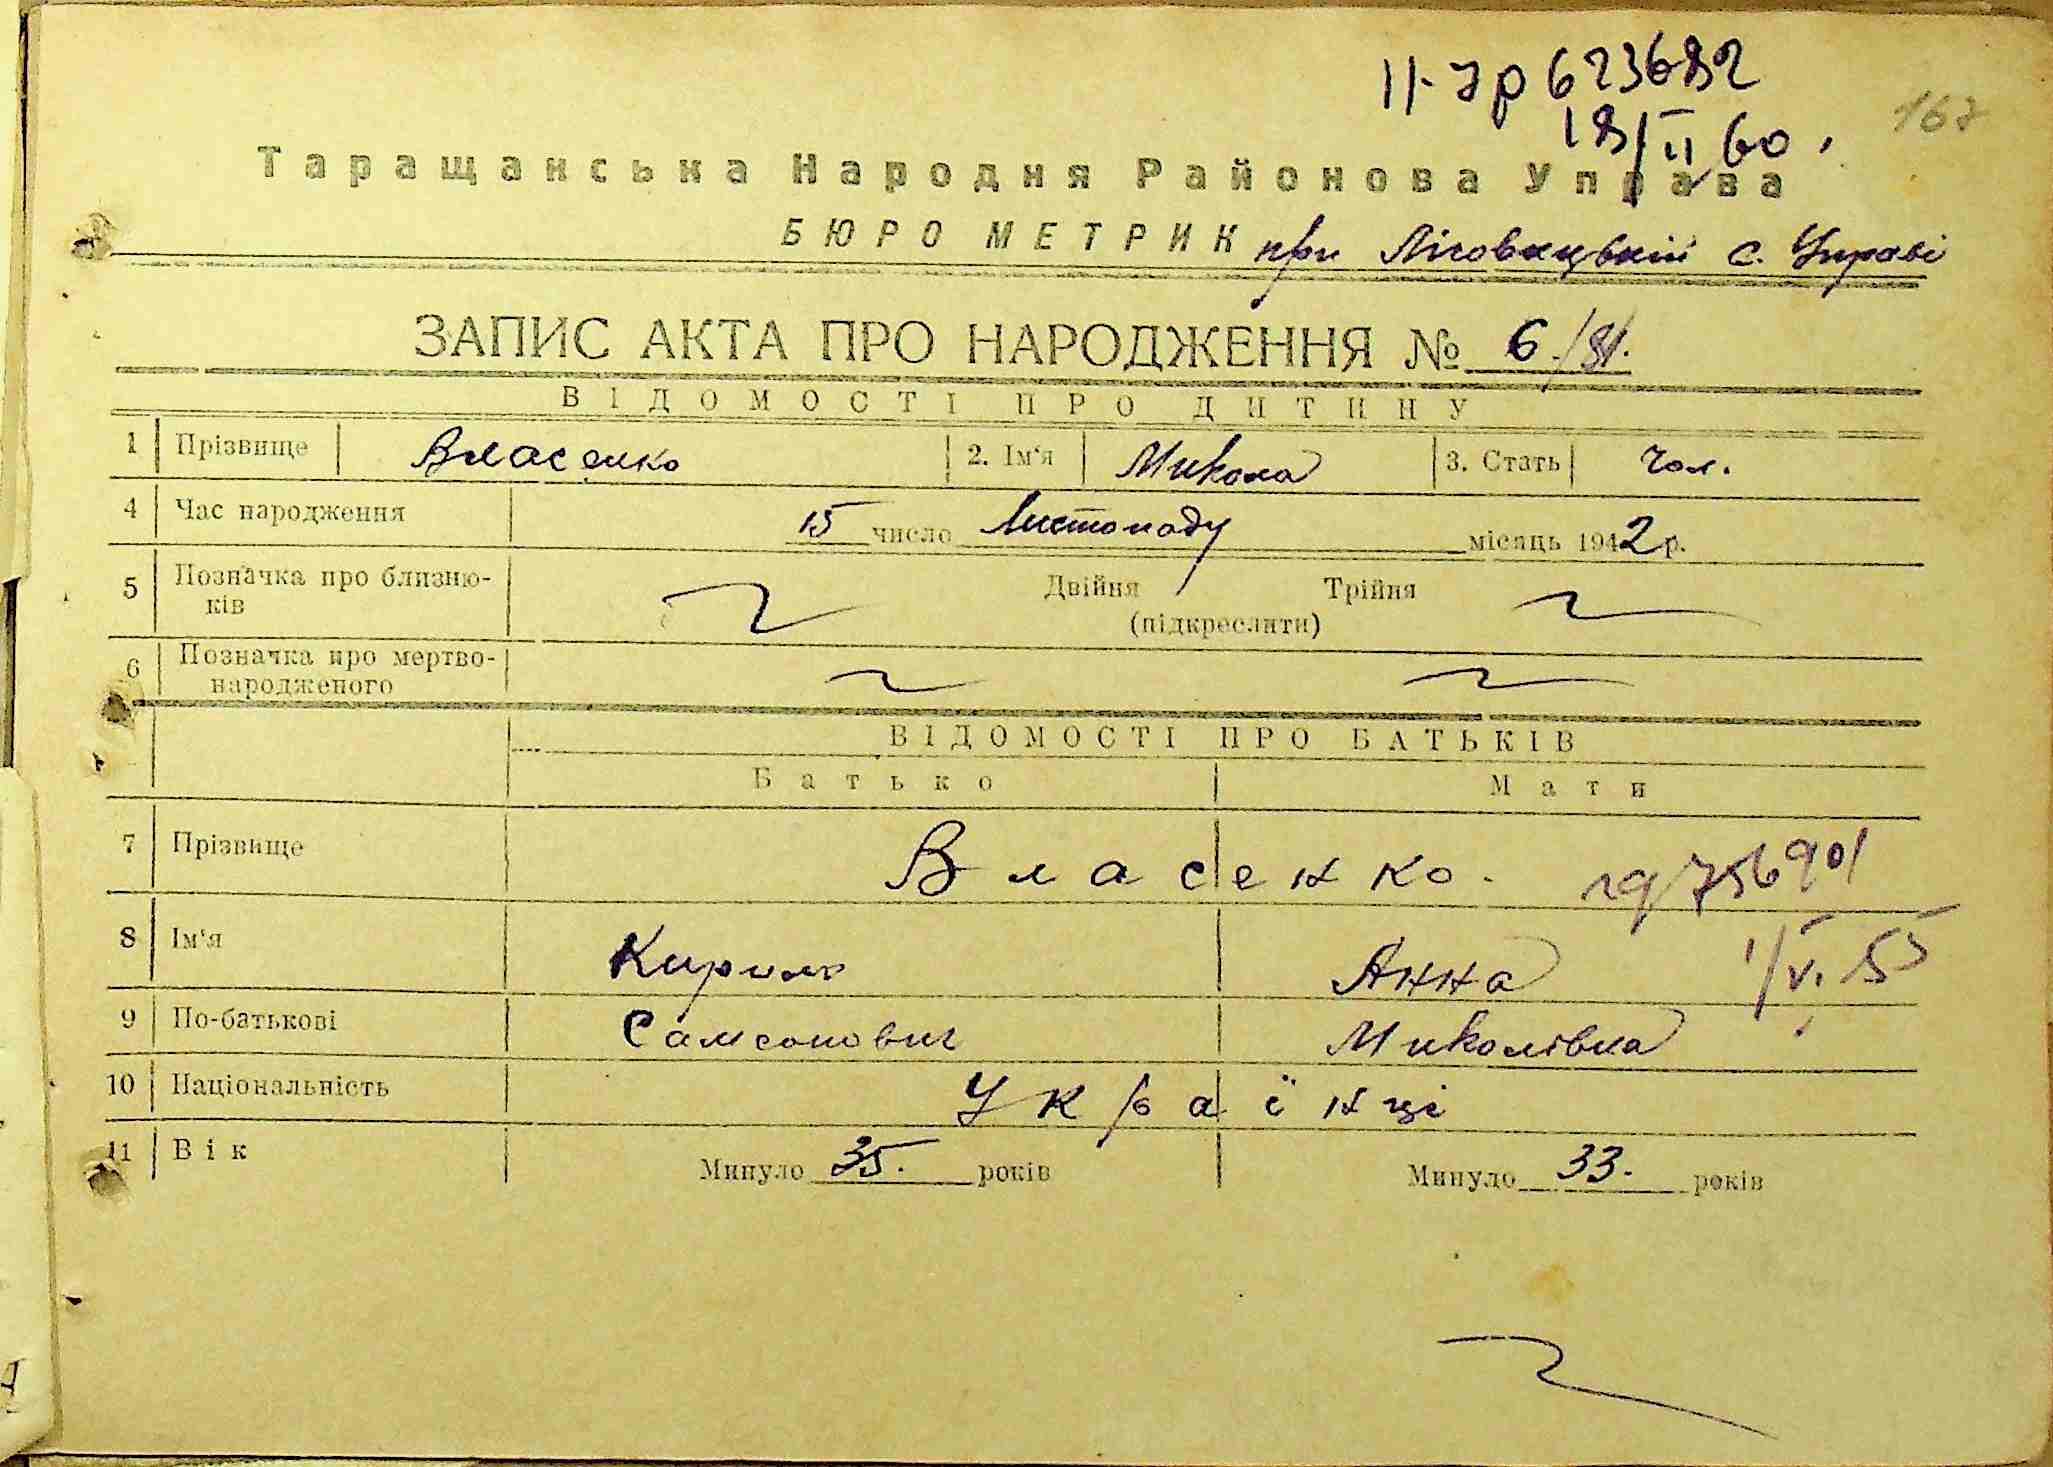 II-ЗР 623682
167
18/II 60.
Таращанська Народня Районова Управа
БЮРО МЕТРИК при Лісовицькій с. Управі
ЗАПИС АКТА ПРО НАРОДЖЕННЯ № 6./81.
ВІДОМОСТІ ПРО ДИТИНУ
1 Прізвище Власенко 2. Ім'я Микола 3. Стать чол.
4 Час народження 15 число Листопаду місяць 1942 р.
5 Позначка про близню- Двійня Трійня
ків (підкреслити)
6 Позначка про мертво-
народженого
ВІДОМОСТІ ПРО БАТЬКІВ
Батько Мати
7 Прізвище Власенко. 756901
8 Ім'я Кирило Анна 1/VI 55
9 По-батькові Самсонович Миколівна
10 Національність Українці
11 Вік Минуло 35. років Минуло 33. років